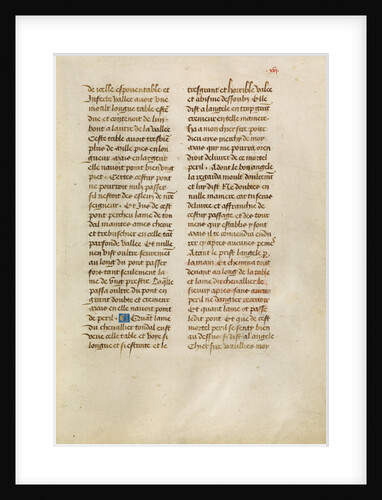 .xiij.
de icelle espouentable et
Infecte vallee auoit vne
moult longue table estē
due et contenoit de lun
bout a lautre de la vallee
Ceste table auoit tresbien
plus de mille pies en lon
gueur mais en largeur
elle nauoit point bien vng
piet Certes cestui pont
ne pourroit nulz passer
sil nestoit des esleuz de nr̄e
seigneur Et Jus de cest
pont percheu lame de ton
dal maintes ames cheoir
et trebuschier en celle tant
parfonde vallee Et nulle
nen vist oultre seurement
au long du pont passer
fors tant seulement la
me de vng prestre Laq̄lle
passa oultre du pont en
grant doubte et cremeur
mais elle nauoit point
au peril Et Quāt lame
du cheuallier tondal eust
veue celle table et voye si
longue et si estroite et le
tresgrant et horrible valee
et abisme dessoubz Elle
dist a langele en trop grāt
cremeur en telle maniere
ha a mon chier sire poire
dieu ayes mercy de moy
mais qui me pourra oren
droit deliurer de ce mortel
peril Adont le bon angele
la regarda moult doulcemt̄
et lui dist Ne doubtes en
nulle maniere car tu seras
deliuree et affranchie de
cestui passage et des tour
mens que establis y sont
mais il te conuendra endu
rer cy apres aucune peine
Atant le prist langele p̱
la main Et chemina tout
deuant au long de la table
et lame du cheuallier le
sieuoit apres sans autre
peril ne dangier rencontrer
Et quant lame eut passe
ledit pont Et que de cest
mortel peril se senty bien
au dessus si dist al angele
Chier sire vueillies moy